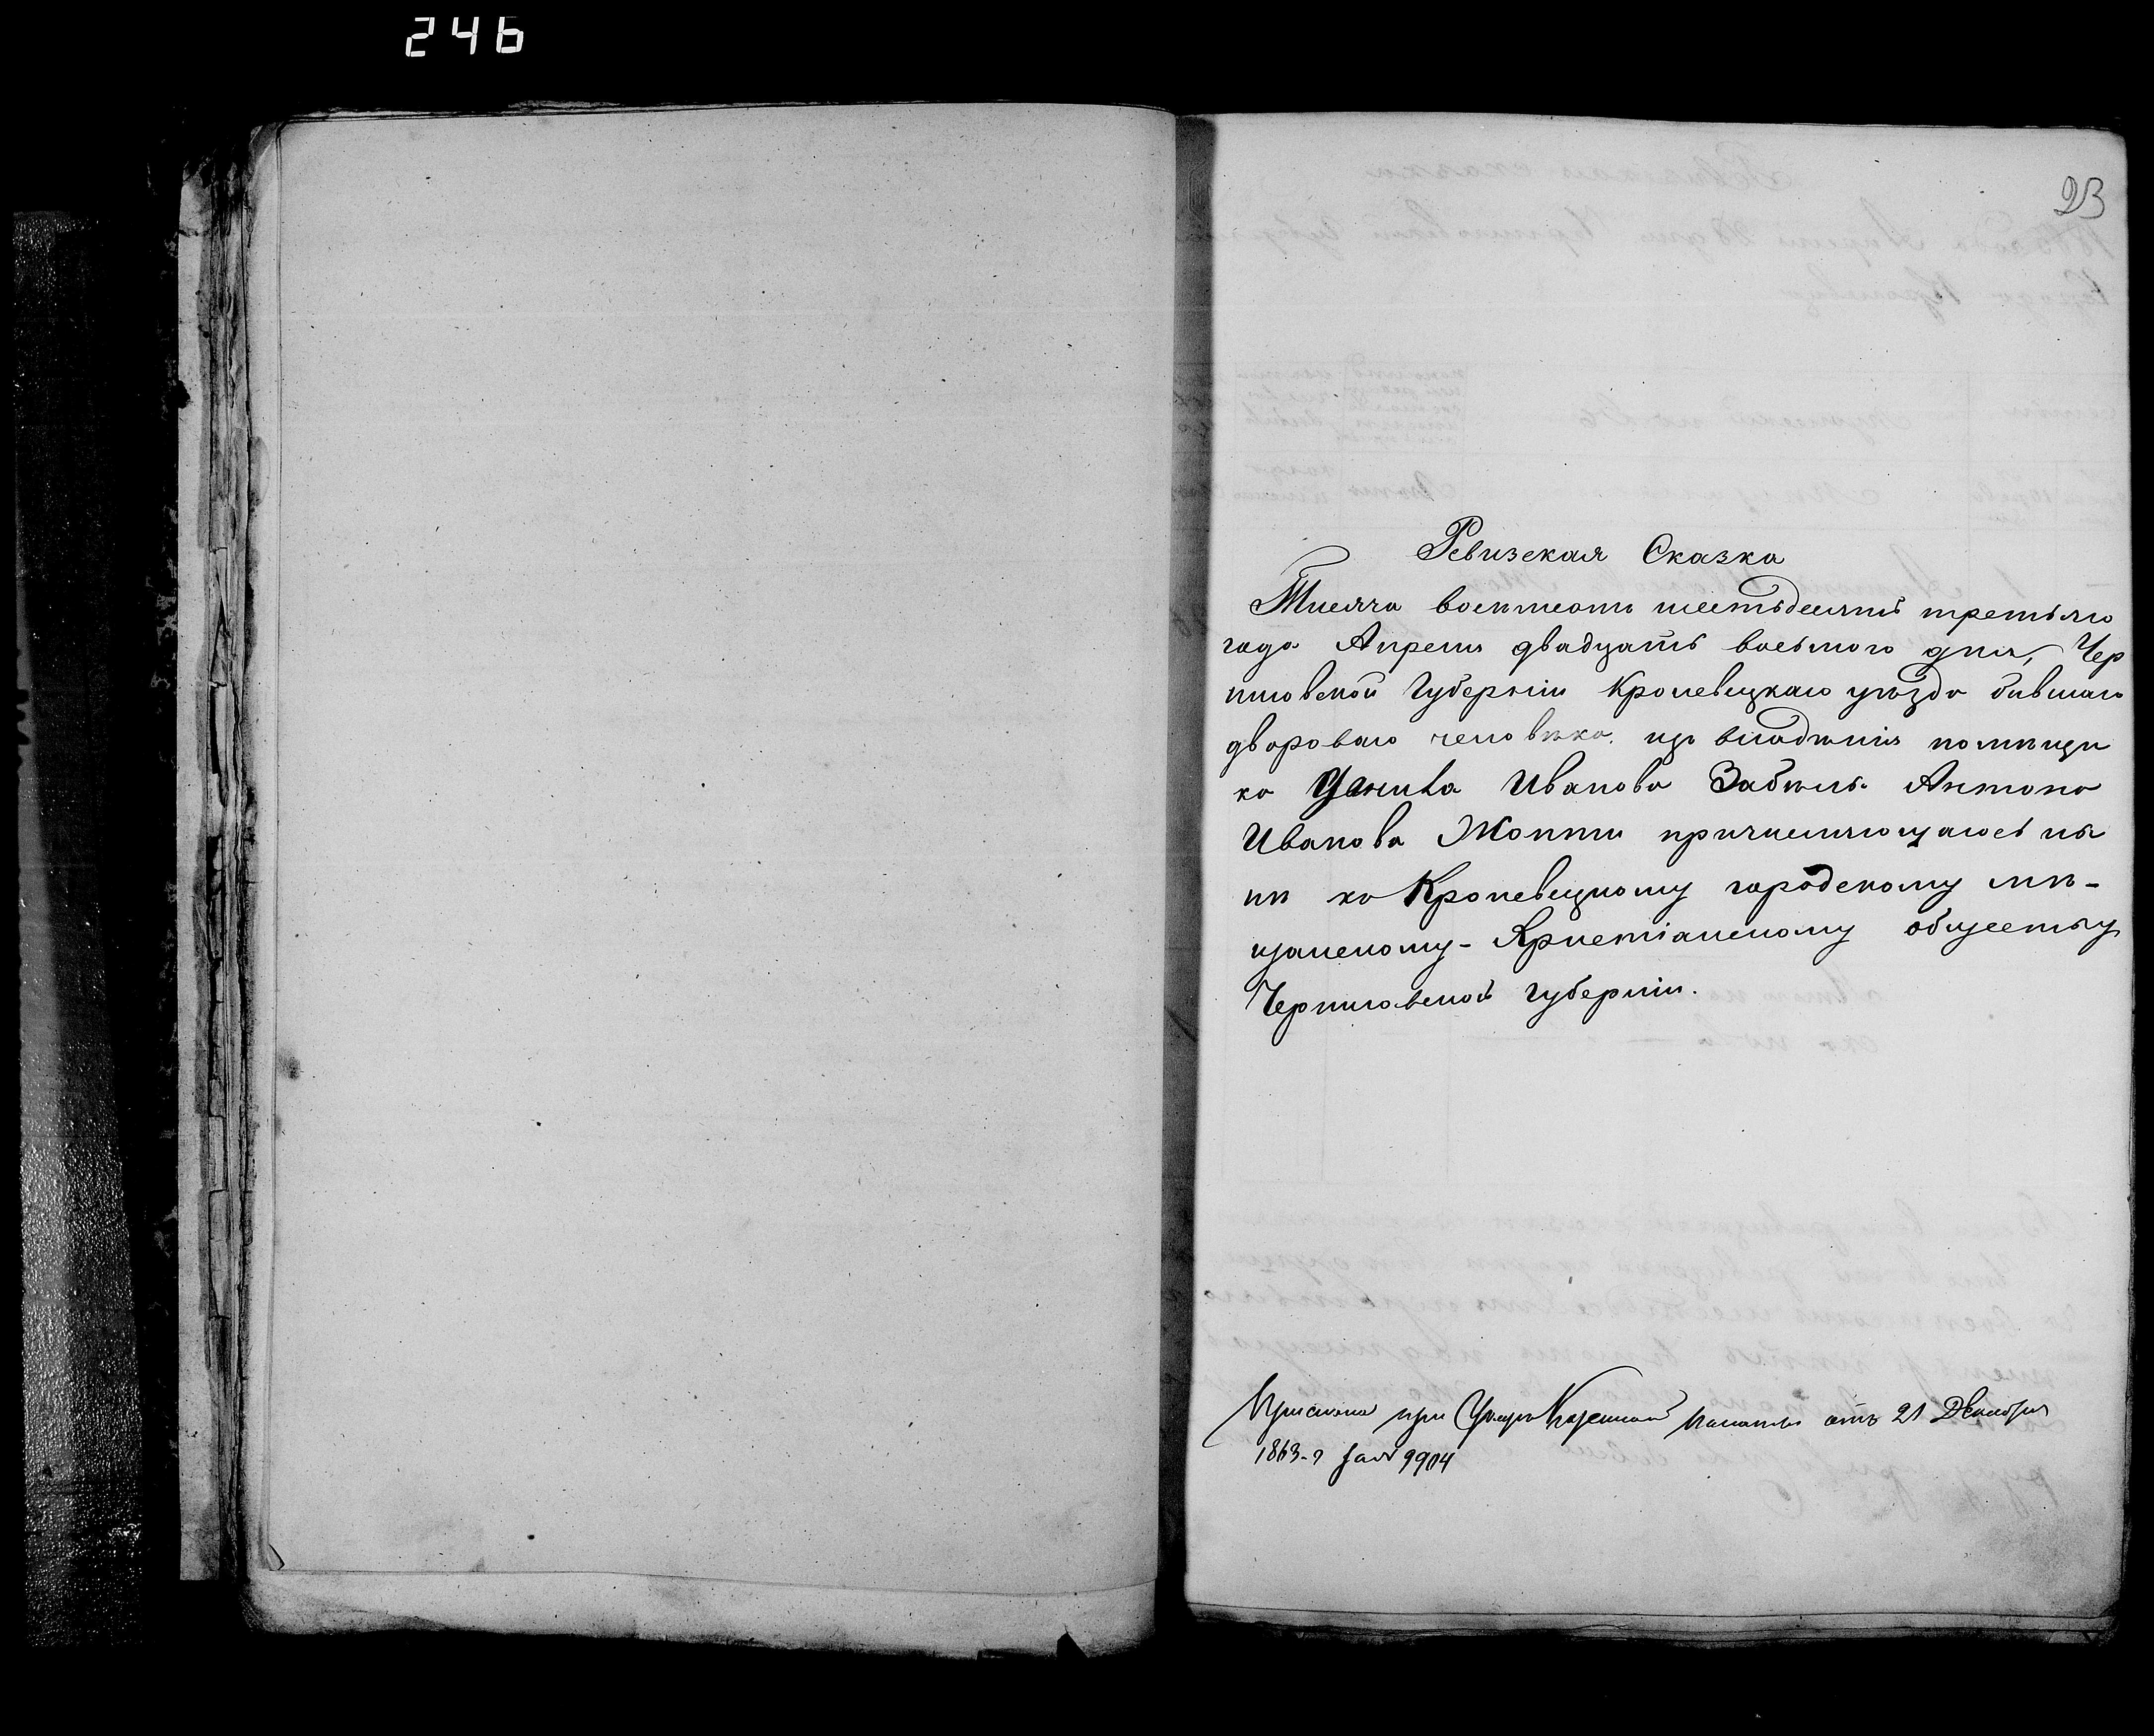 246
23
Ревизская Сказка
Тисяча восемсотъ шестьдесятъ третьяго
года Апреля двадцать восьмого дня, Чер
ниговской Губерніи Кролевецкаго уѣзда бившаго
двороваго человѣка, изъ владѣнія помѣщи
ка Иванова Забѣлы Антона
Иванова причисляющагося ны
нѣ ко Кролевецкому городскому мѣ-
щанскому-Христіанскому обществу
Черниговской губерніи.
Прислана при Указѣ Казенной Палаты отъ 21 Декабря
1863 г за № 9904